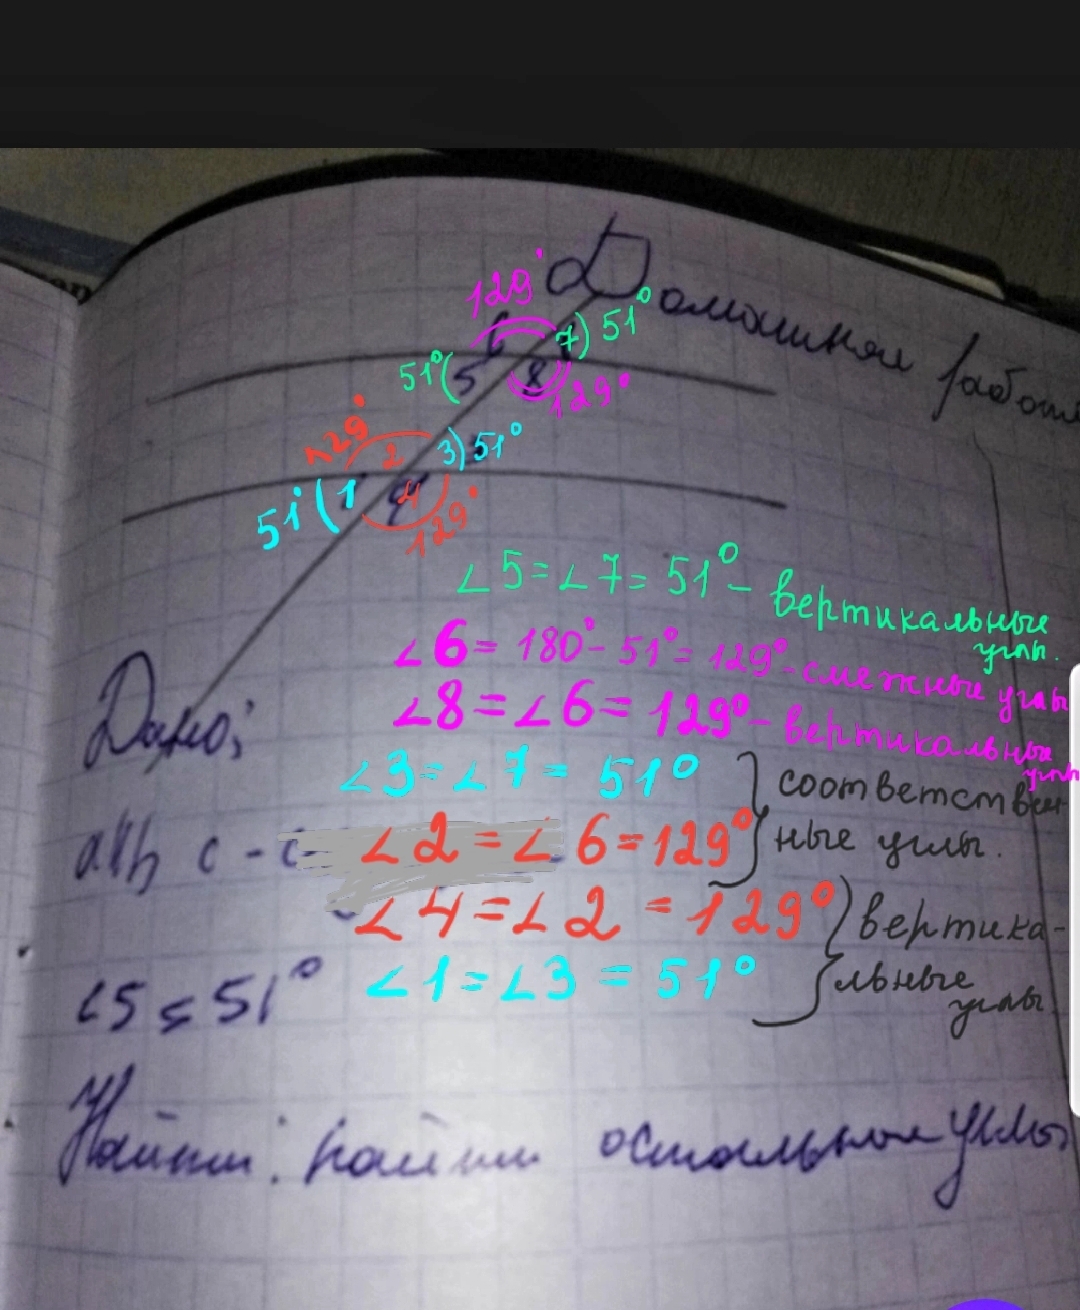 Домашняя
129°
6
7) 51°
51° (
5
8
129°
129°
2
3) 51°
51° ( 1
4
129°
∠5=∠7=51° – вертикальные
углы.
∠6= 180°- 51°= 129° - смежные углы
∠8=∠6= 129° – вертикальные
углы
Дано:
∠3=∠7= 51°
соответствен-
a||b c -
∠2=∠6=129°
ные углы.
∠4=∠2 =129°
вертика-
∠1=∠3 = 51°
льные
углы
∠5 = 51°
Найти: найти остальные углы